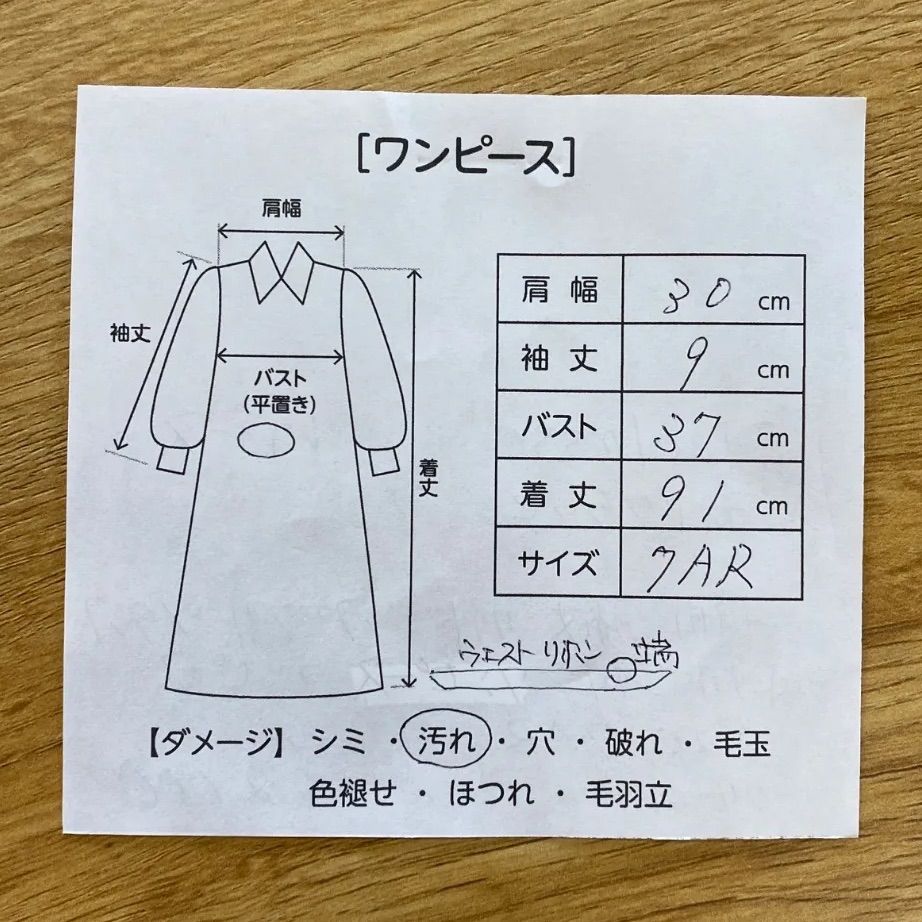 [ワンピース]
肩幅
袖丈
バスト
(平置き)
着丈
肩 幅 30 cm
袖 丈 9 cm
バスト 37 cm
着 丈 91 cm
サイズ 7AR
ウェストリボン 端
【ダメージ】 シミ ・ 汚れ ・ 穴 ・ 破れ ・ 毛玉
色褪せ ・ ほつれ ・ 毛羽立